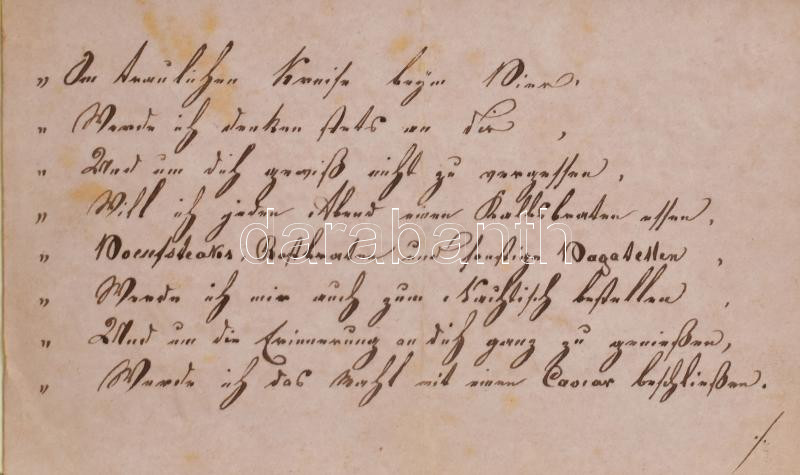 „ Im traulichen Kreise beÿm Bier,
„ Werde ich denken stets an dir ,
„ Und um dich gewiß nicht zu vergessen ,
„ Will ich jeden Abend einen Kalbsbraten essen ,
„ Boeufsteaks, Rostbraten und sonstige Bagatellen ,
„ Werde ich mir auch zum Nachtisch bestellen ,
„ Und um die Erinnerung an dich ganz zu genießen,
„ Werde ich das Mahl mit einem Caviar beschließen.
./.
darabanth